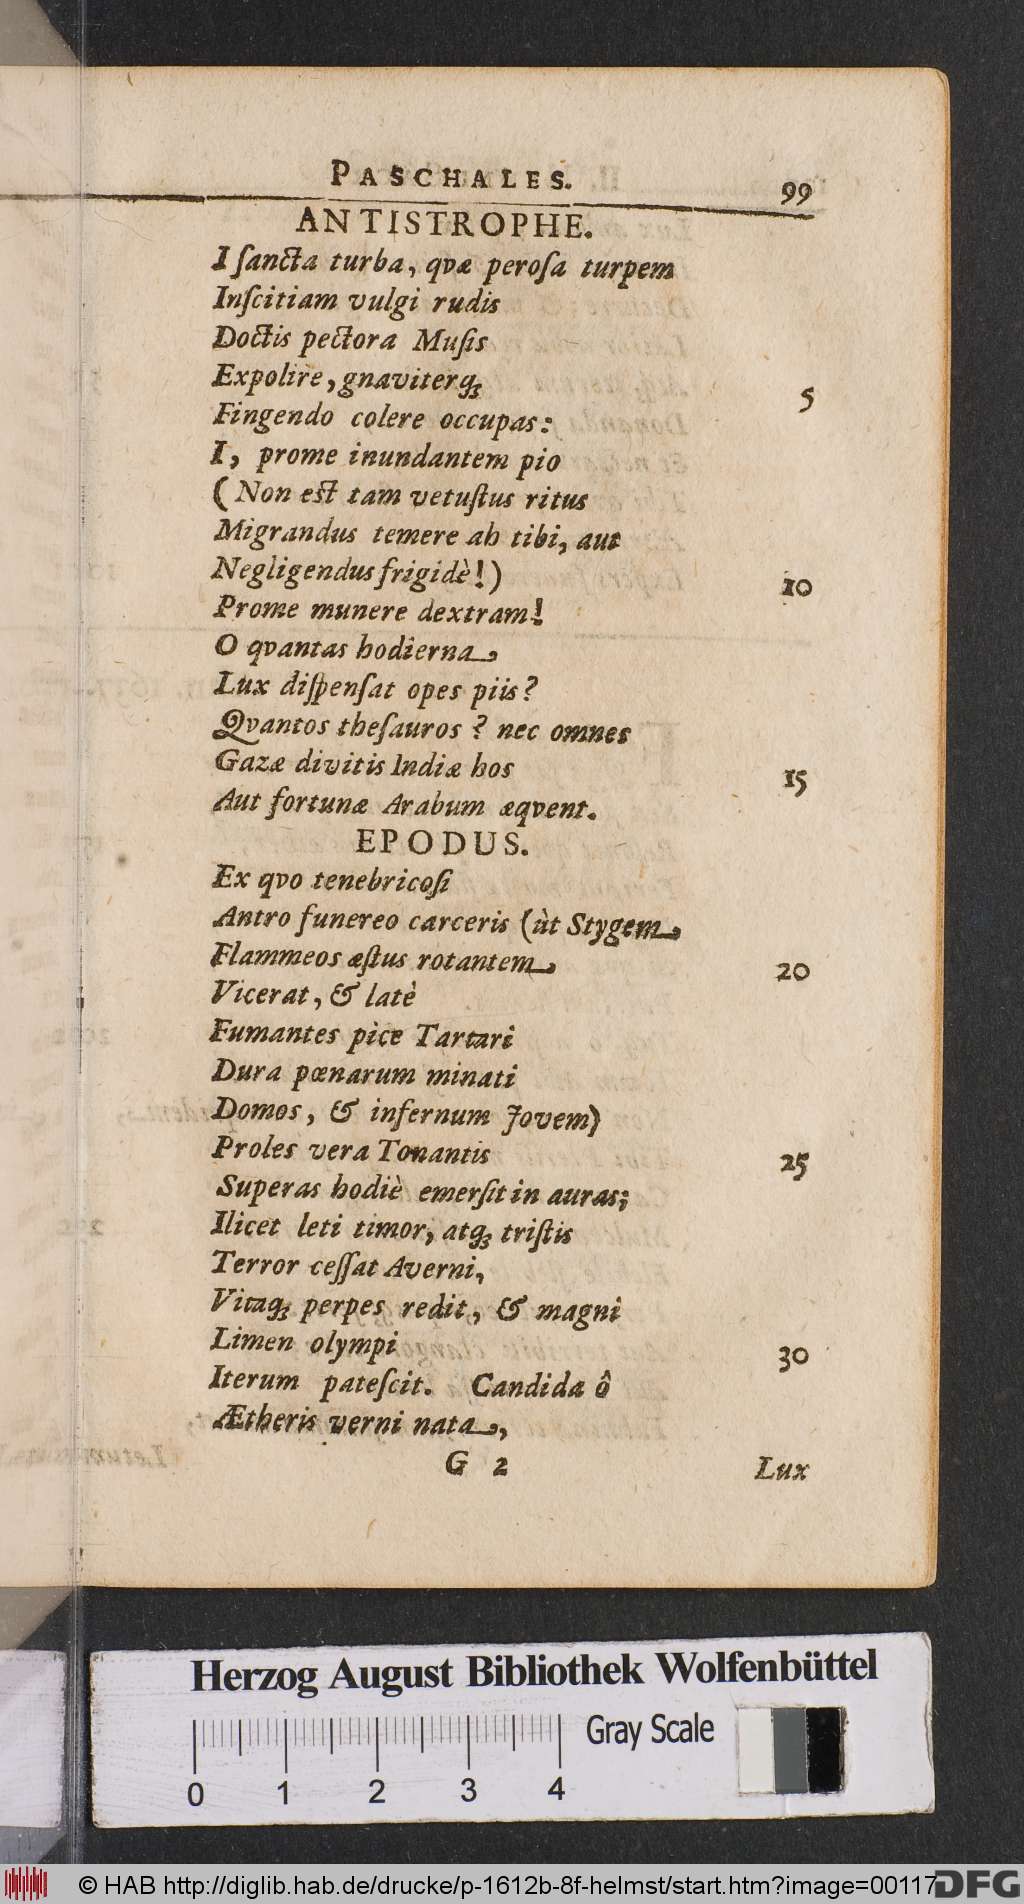 PASCHALES. 99
ANTISTROPHE.
I ſancta turba, qvæ peroſa turpem
Inſcitiam vulgi rudis
Doctis pectora Muſis
Expolire, gnaviterq;
5
Fingendo colere occupas:
I, prome inundantem pio
(Non est tam vetuſtus ritus
Migrandus temere ab tibi, aut
Negligendus frigidè!)
10
Prome munere dextram!
O qvantas hodierna
Lux diſpenſat opes piis?
Qvantos theſauros? nec omnes
Gazæ divitis Indiæ hos
15
Aut fortunæ Arabum æqvent.
EPODUS.
Ex qvo tenebricoſi
Antro funereo carceris (ùt Stygem
Flammeos æſtus rotantem
20
Vicerat, & latè
Fumantes pice Tartari
Dura pœnarum minati
Domos, & infernum Jovem)
Proles vera Tonantis
25
Superas hodiè emerſit in auras;
Ilicet leti timor, atq; triſtis
Terror ceſſat Averni,
Vitaq; perpes redit, & magni
Limen olympi
30
Iterum pateſcit. Candida ô
Ætheris verni nata,
G 2 Lux
Herzog August Bibliothek Wolfenbüttel
Gray Scale
0 1 2 3 4
© HAB http://diglib.hab.de/drucke/p-1612b-8f-helmst/start.htm?image=00117
DFG